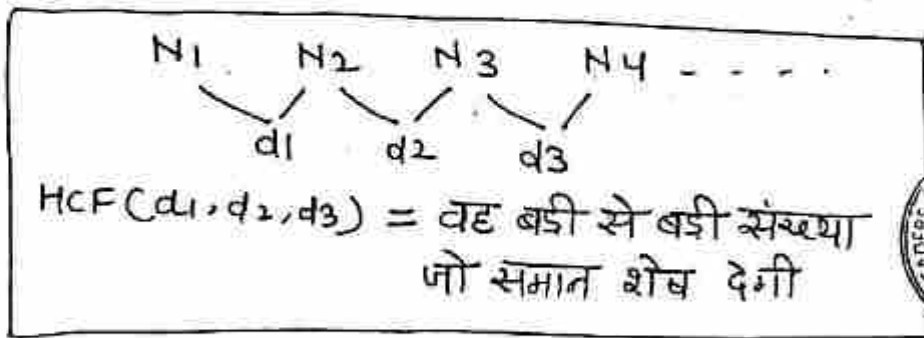 N1 N2 N3 N4 - - - -
d1 d2 d3
HCF(d1,d2,d3) = वह बडी से बडी संख्या
जो समान शेष देगी